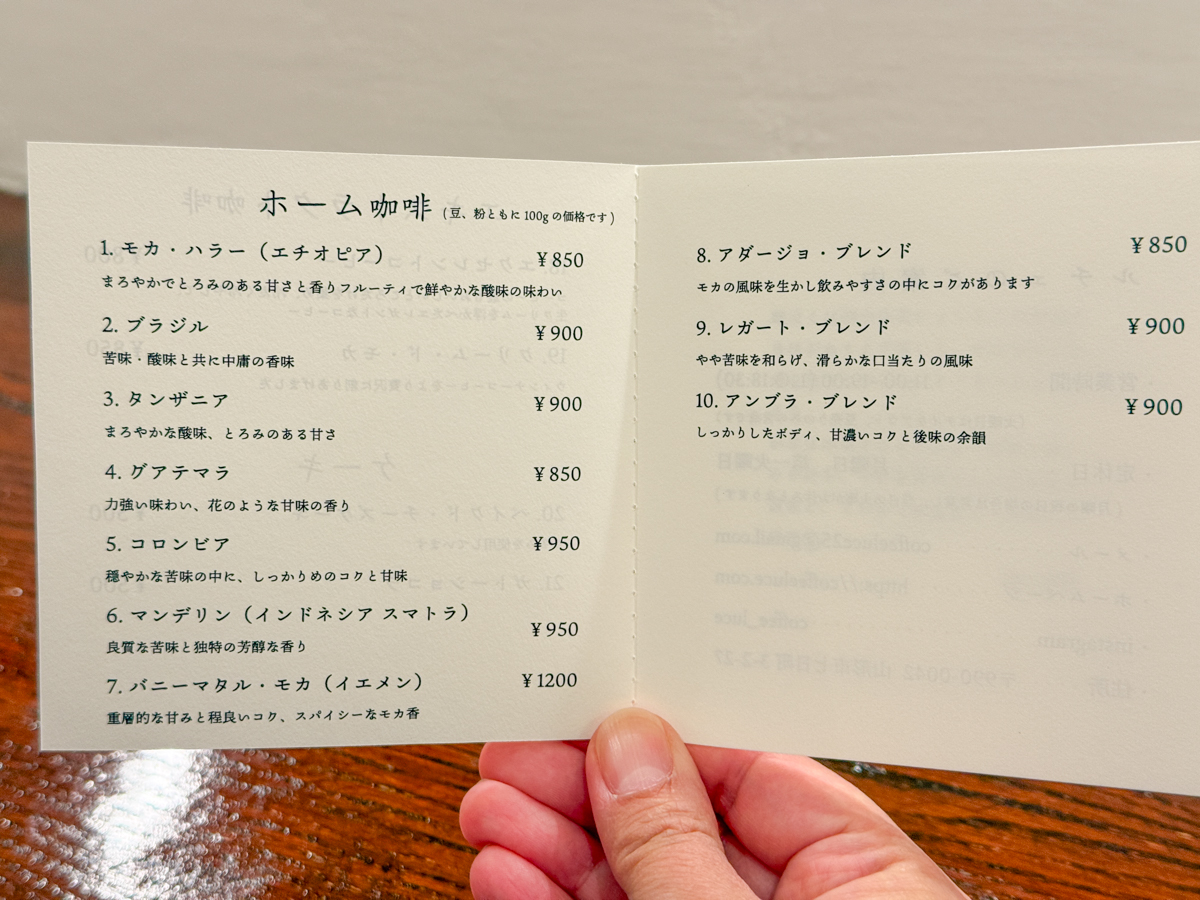 ホーム珈琲 (豆、粉ともに100gの価格です)
1. モカ・ハラー（エチオピア） ¥850
まろやかでとろみのある甘さと香りフルーティで鮮やかな酸味の味わい
2. ブラジル ¥900
苦味・酸味と共に中庸の香味
3. タンザニア ¥900
まろやかな酸味、とろみのある甘さ
4. グアテマラ ¥850
力強い味わい、花のような甘味の香り
5. コロンビア ¥950
穏やかな苦味の中に、しっかりめのコクと甘味
6. マンデリン（インドネシア スマトラ） ¥950
良質な苦味と独特の芳醇な香り
7. バニーマタル・モカ（イエメン） ¥1200
重層的な甘みと程良いコク、スパイシーなモカ香
8. アダージョ・ブレンド ¥850
モカの風味を生かし飲みやすさの中にコクがあります
9. レガート・ブレンド ¥900
やや苦味を和らげ、滑らかな口当たりの風味
10. アンブラ・ブレンド ¥900
しっかりしたボディ、甘濃いコクと後味の余韻